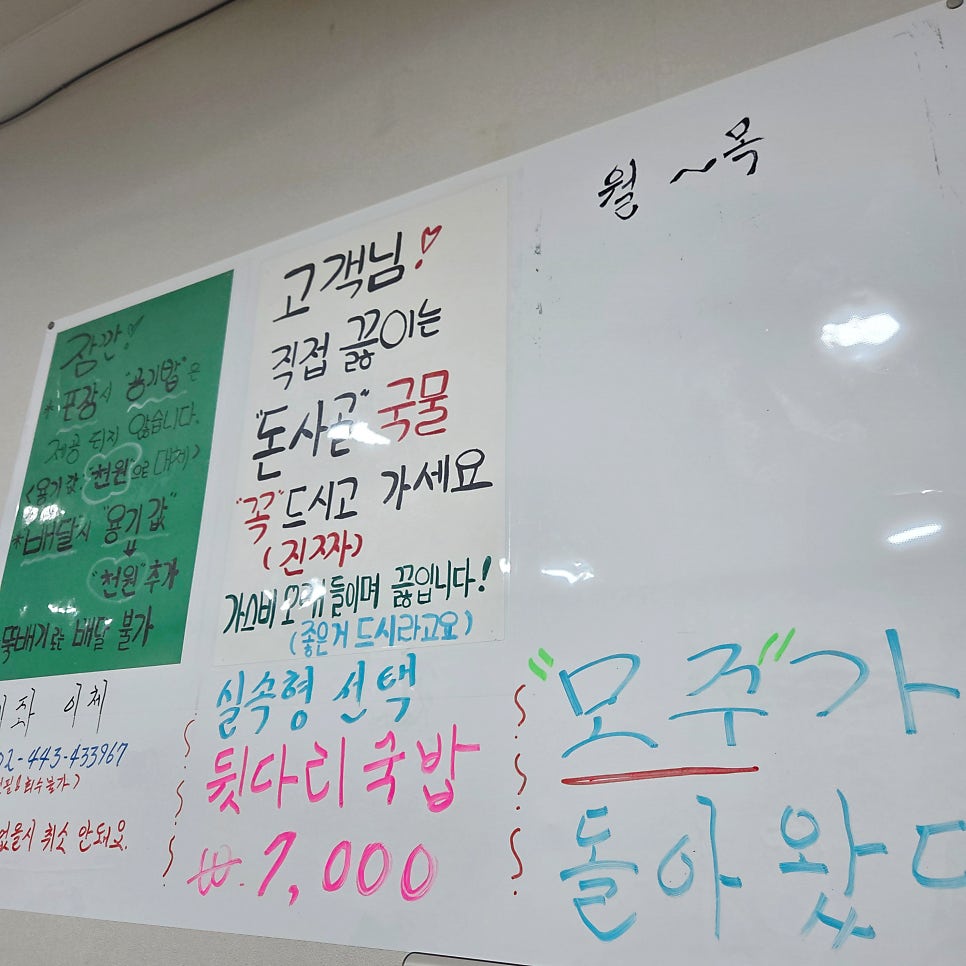 잠깐!
*포장시 "용기밥"은
제공 되지 않습니다.
<용기값 "천원"으로 대체>
*배달시 "용기값"
"천원"추가
뚝배기로는 배달 불가
좌 이체
02-443-433967
회수불가)
없을시 취소 안돼요.
고객님!♡
직접 끓이는
"돈사골" 국물
"꼭"드시고 가세요
(진짜)
가스비 오래 들이며 끓입니다!
(좋은거 드시라고요)
실속형 선택
뒷다리국밥
₩.7,000
월 ~목
"모주"가
돌아왔다